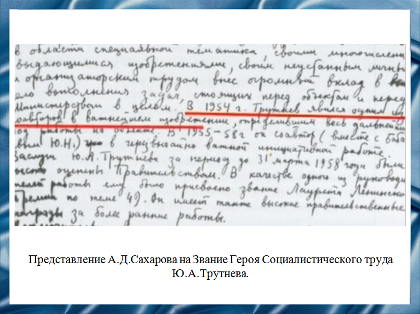 в области специальной тематики. Своими многочислен
выдающимися изобретениями, своим неустанным научны
и организаторским трудом внес огромный вклад в
ело выполнения задач, стоящих перед объектом и перед
Министерством в целом. В 1954 г. Трутнев явился одним из
соавторов в важнейшем изобретении, определившим весь дальнейш
ход работы на объекте. В 1955-58г он соавтор (вместе с Баба
вым Ю.Н.) в чрезвычайно важной инициативной работе.
Заслуги Ю.А.Трутнева за период до 31 марта 1958 года были
оценены Правительством. В качестве одного из руководи
телей работы ему было присвоено звание Лауреата Ленинской
Премии по теме 49. Он имеет также высокие правительственные
награды за более ранние работы.
Представление А.Д.Сахарова на Звание Героя Социалистического труда
Ю.А.Трутнева.